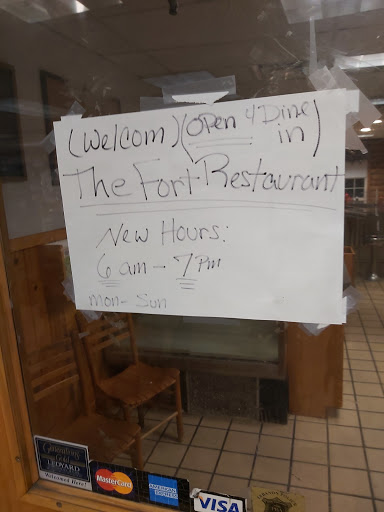 (Welcom) (OPEN 4 Dine in)
The Fort Restaurant
New Hours:
6 am - 7 Pm
mon - Sun
Generations
Gold
LEDYARD
Welcomed Here!
MasterCard
AMERICAN EXPRESS
VISA